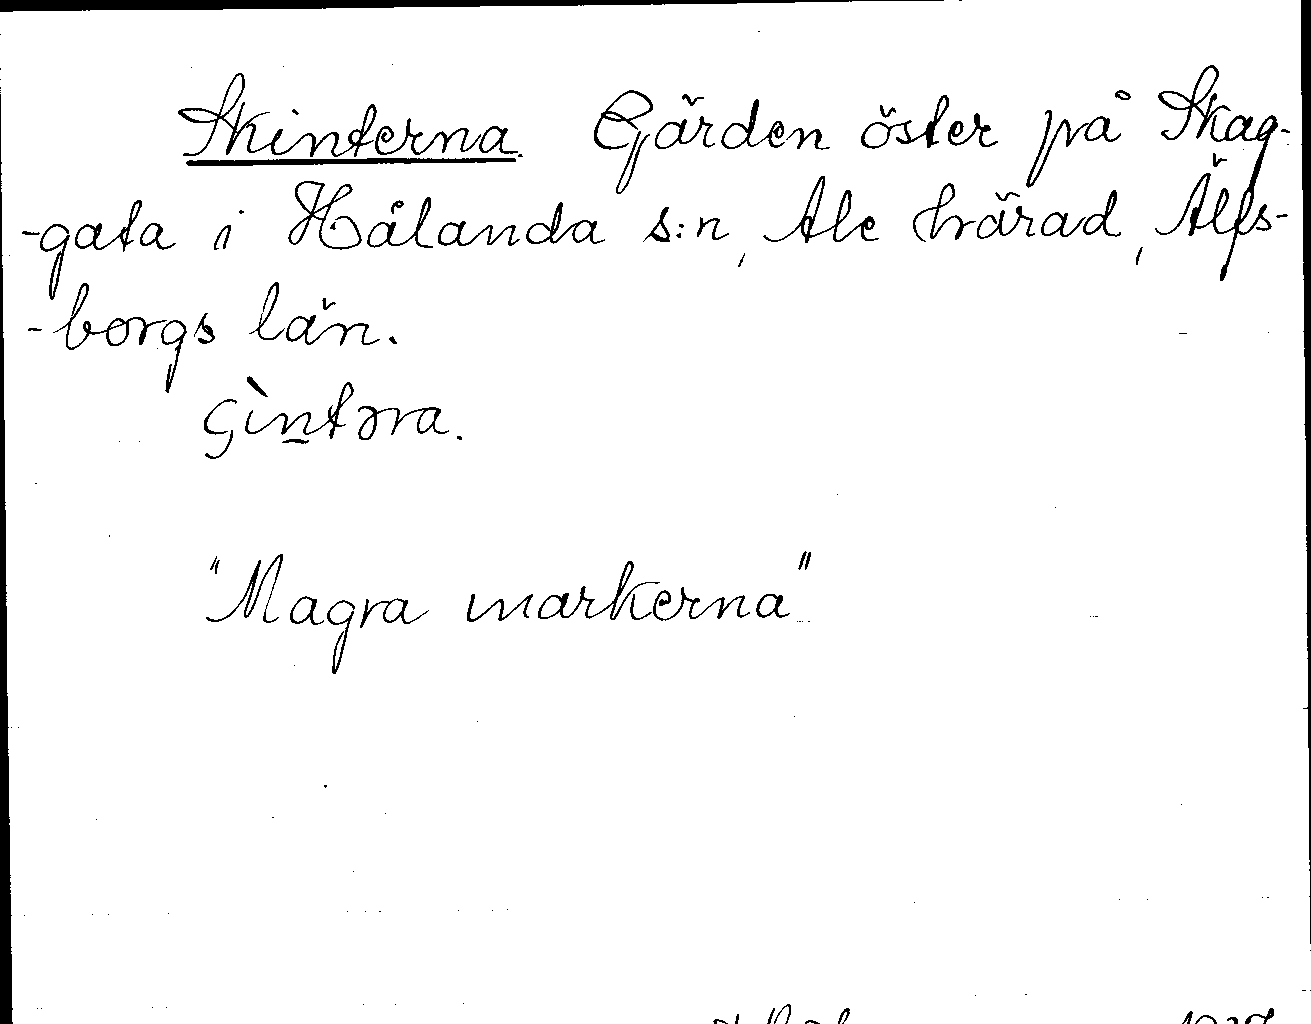 Skinterna. Gärden öster på Skag-
-gata i Hålanda s:n, Ale härad, Älfs-
-borgs län.
ɕìn̲təra.
"Magra markerna"